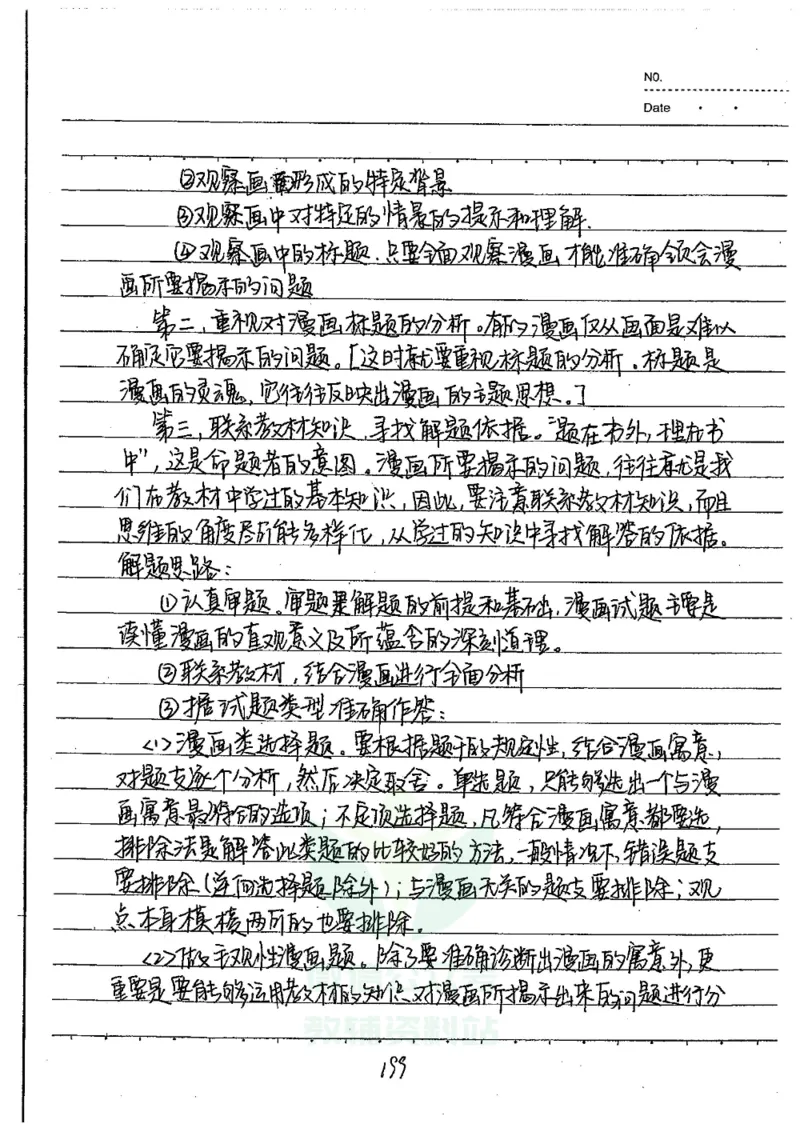 NO.
Date
②观察画面形成的特定背景
③观察画中对特定的情景的提示和理解.
④观察画中的标题.只要全面观察漫画才能准确领会漫
画所要揭示的问题
第二,重视对漫画标题的分析。有的漫画仅从画面是难以
确定它要揭示的问题。[这时就要重视标题的分析。标题是
漫画的灵魂,它往往反映出漫画的主题思想。]
第三,联系教材知识,寻找解题依据。"题在书外,理在书
中",这是命题者的意图。漫画所要揭示的问题,往往就是我
们在教材中学过的基本知识,因此,要注意联系教材知识,而且
思维的角度尽可能多样化,从学过的知识中寻找解答的依据。
解题思路:
①认真审题。审题是解题的前提和基础,漫画试题主要是
读懂漫画的直观意义及所蕴含的深刻道理。
②联系教材,结合漫画进行全面分析
③据试题类型准确作答:
<1>漫画类选择题。要根据题干的规定性,结合漫画寓意,
对题支逐个分析,然后决定取舍。单选题,只能够选出一个与漫
画寓意最符合的选项;不定项选择题,凡符合漫画寓意都要选,
排除法是解答此类题的比较好的方法,一般情况下,错误题支
要排除(逆向选择题除外);与漫画无关的题支要排除;观
点本身模棱两可的也要排除。
<2>做主观性漫画题。除了要准确诊断出漫画的寓意外,更
重要是要能够运用教材的知识对漫画所揭示出来的问题进行分
教辅资料站
199